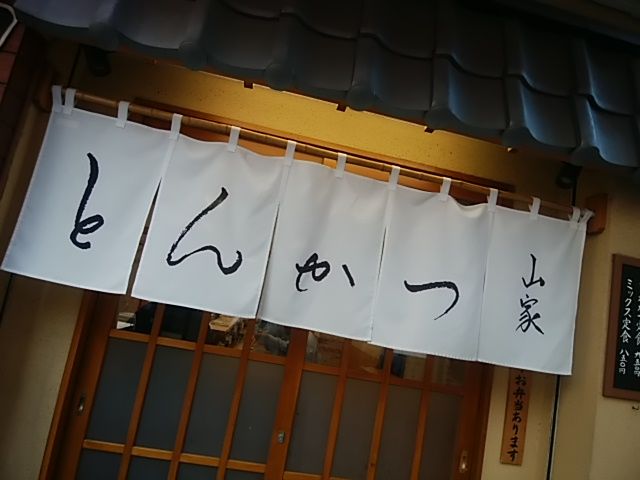 とんかつ
山家
お弁当あります
ミックス定食 八五〇円